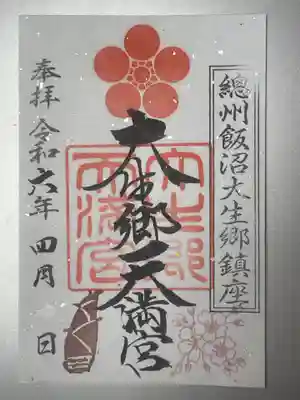 總州飯沼大生郷鎮座
大生郷天満宮
奉拝 令和六年 四月 日